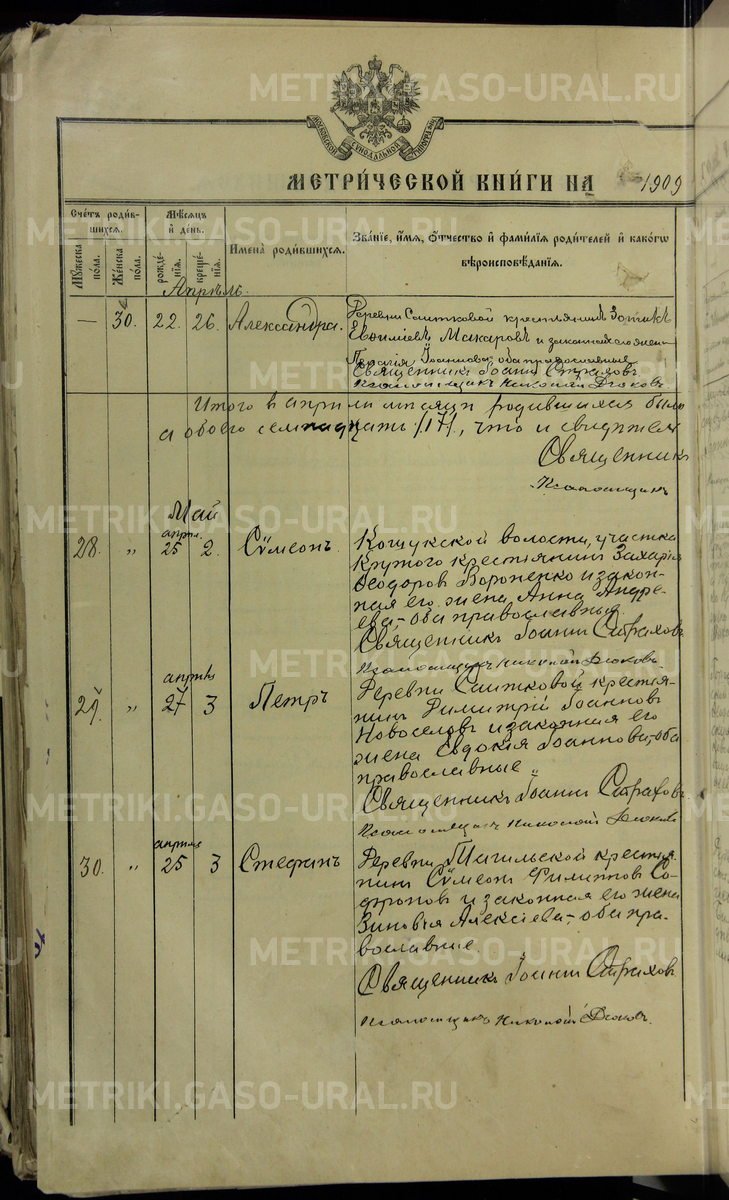 МОСКОВСКОЙ СѴНОДАЛЬНОЙ ТИПОГРАФІИ
МЕТРИ́ЧЕСКОЙ КНИ́ГИ НА 1909
Сче́тъ роди́вшихся.
Му́жеска по́ла.
Же́нска по́ла.
Мѣ́сяцъ и҆ де́нь.
рожде́нїѧ.
креще́нїѧ.
И҆мена̀ роди́вшихсѧ.
Зва́нїе, и҆́мѧ, ѻ҆́тчество и҆ фамі́лїѧ роди́телей и҆ како́гѡ вѣроисповѣ́данїѧ.
Апрѣль.
— 30. 22. 26. Александра.
Деревни Саитковой крестьянинъ Зотикъ
Евѳиміевъ Макаровъ и законная его жена
Іоаннова, оба православные
Священникъ Іоаннъ Страховъ
Псаломщикъ Николай Дьяковъ
Итого в апрѣли мѣсяцѣ родившихся было
обоего семнадцать /17/, что и свидѣтел
Священникъ
Псаломщикъ
Май
28. „ апрѣл. 25 2. Сѵмеонъ.
Кошукской волости, участка
Крутого крестьянинъ Захарія
Ѳеодоров Вороненко и закон-
ная его жена Анна Андре-
ева,-оба православные.
Священникъ Іоаннъ Страховъ
Псаломщикъ Николай Дьяковъ
29. „ апрѣля 27 3 Петръ
Деревни Саитковой крестья-
нинъ Димитрій Іоанновъ
Новоселовъ и законная его
жена Евдокія Іоаннова,-оба
православные.
Священникъ Іоаннъ Страховъ
Псаломщикъ Николай Дьяковъ
30. „ апрѣля 25 3 Стефанъ
Деревни Тагильской крестья-
нинъ Сѵмеонъ Филиппов Со-
фронов и законная его жена
Зиновія Алексіева,-оба пра-
вославные.
Священникъ Іоаннъ Страховъ
Псаломщикъ Николай Дьяковъ.
METRIKI.GASO-URAL.RU